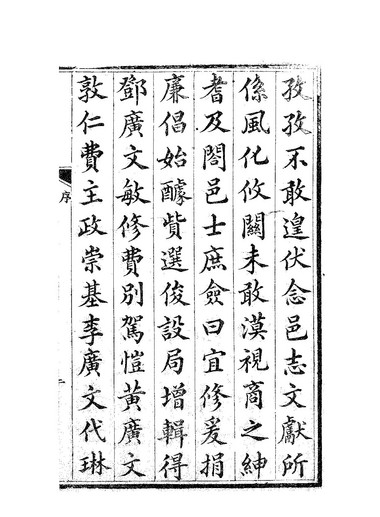 孜孜不敢遑伏念邑志文獻所
係風化攸關未敢漠視商之紳
耆及閤邑士庶僉曰宜修爰捐
廉倡始醵貲選俊設局增輯得
鄧廣文敏修費別駕愷黃廣文
敦仁費主政崇基李廣文代琳
序